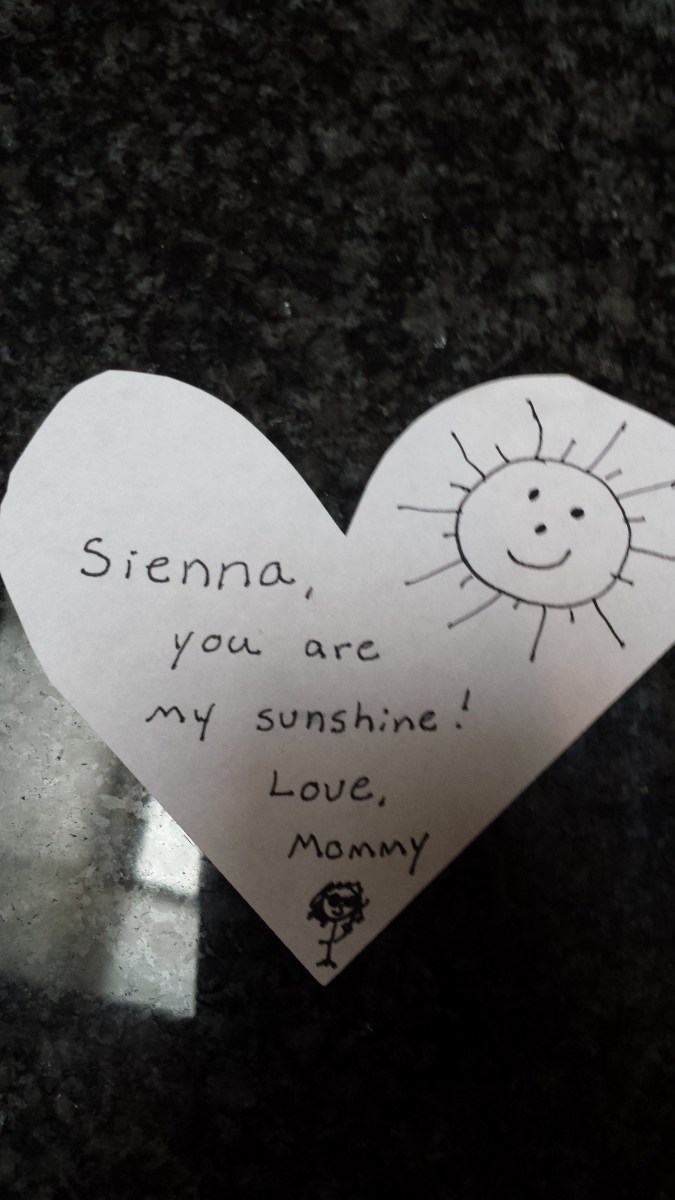 Sienna,
you are
my sunshine!
Love,
Mommy